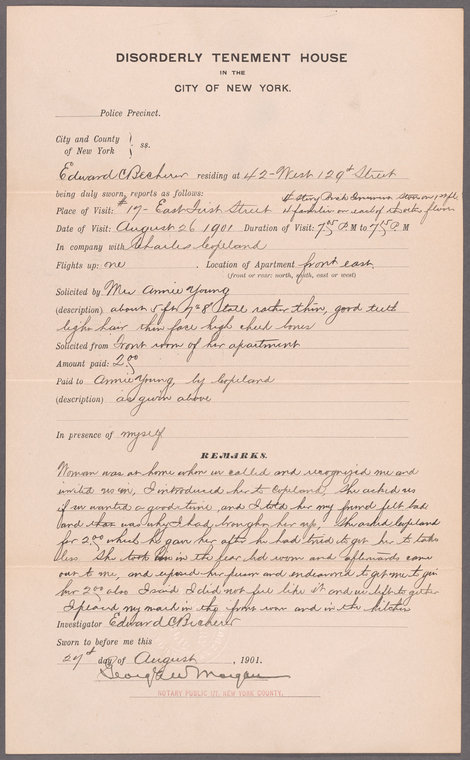 DISORDERLY TENEMENT HOUSE
IN THE
CITY OF NEW YORK.
Police Precinct.
City and County
of New York } ss.
Edward C Becherer residing at 42-West 129th Street
being duly sworn, reports as follows:
Place of Visit: #17- East First Street
4 families on each of the other floors
Date of Visit: August 26 1901 Duration of Visit: 7 05 P.M to 7 15 P.M
In company with Charles Copeland
Flights up: one . Location of Apartment front east
(front or rear: north, south, east or west)
Solicited by Mrs Annie Young
(description) about 5 ft 7 or 8" tall rather thin, good teeth
light hair thin face high cheek bones
Solicited from Front room of her apartment
Amount paid: 2 00
Paid to Annie Young, by Copeland
(description) as given above
In presence of myself
REMARKS.
Woman was at home when we called and recognized me and
invited us in, I introduced her to Copeland, She asked us
if we wanted a good time, and I told her my friend felt bad
and that was why I had brought her up, She asked Copeland
for 2.00 which he gave her after he had tried to get her to take
less. She took him in the rear bed room and afterwards came
out to me, and exposed her person and endeavored to get me to give
her 2 00 also I said I did not feel like it and we left together
I placed my mark in the front room and in the kitchen
Investigator Edward C Becherer
Sworn to before me this
27th day of August , 1901.
George W Morgan
NOTARY PUBLIC NEW YORK COUNTY.